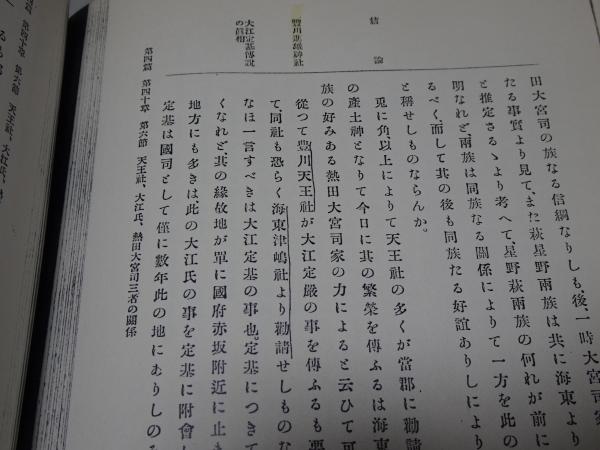 田大宮司の族なる信綱なりしも、後、一時大宮司
たる事實より見て、また萩星野兩族は共に海東より
と推定さるゝより考へて、星野萩兩族の何れが前に
明なれど、兩族は同族なる關係によりて一方を此の
るべく、而して其の後も同族たる好誼ありしにより
と稱せしものならんか。
結論
兎に角以上によりて天王社の多くが當郡に勸請
の產土神となりて今日に其の繁榮を傳ふるは海東
族の好みある熱田大宮司家の力によると云ひて可
豐川進雄神社
從つて豐川天王社が大江定嚴の事を傳ふるも要
て、同社も恐らく海東津嶋社より勸請せしものな
大江定基傳說の眞相
なほ一言すべきは大江定基の事也。定基につきて
くなれど其の緣故地が單に國府赤坂附近に止ま
地方にも多きは、此の大江氏の事を定基に附會し
定基は國司として僅に數年此の地にありしのみ
第四篇 第四十章 第六節 天王社、大江氏、熱田大宮司三者の關係